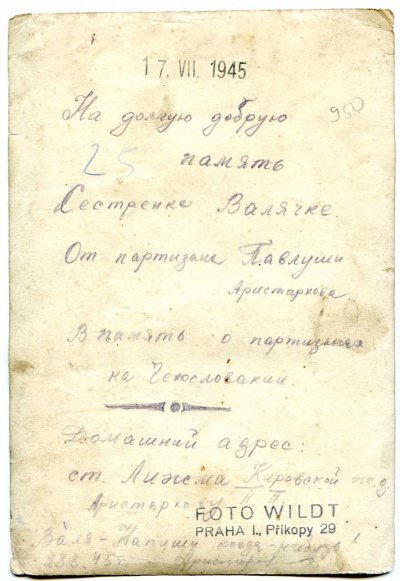 17. VII. 1945
950
На долгую добрую
25
память
Сестренке Валячке
От партизана Павлуши
Аристархова
В память о партизанах
на Чехословакии
Домашний адрес
ст. Лижма Кировской ж. д
Аристархову П. П.
FOTO WILDT
PRAHA I., Příkopy 29
Валя - Напиши когда-нибудь!